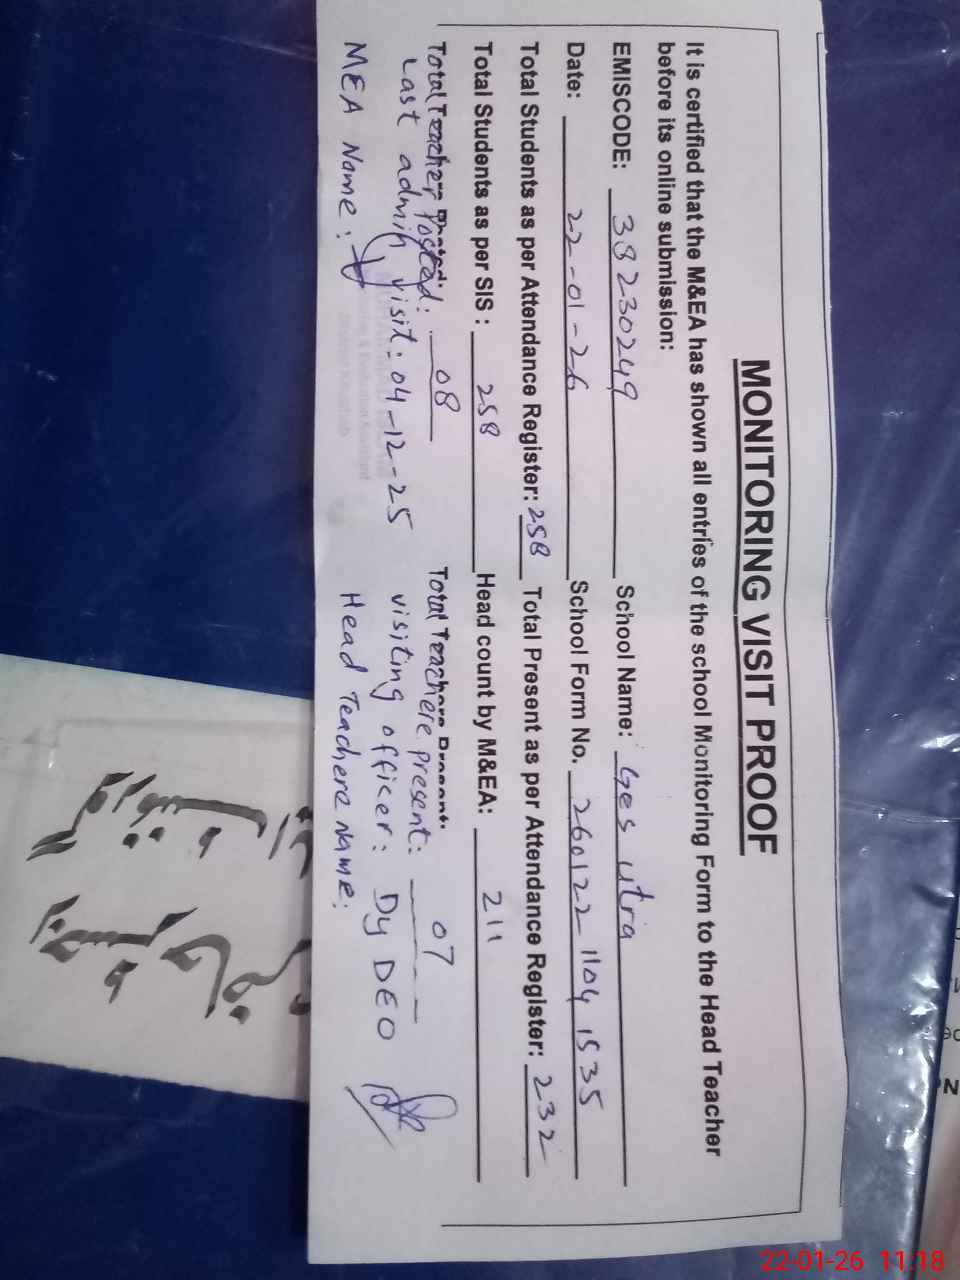 MONITORING VISIT PROOF
It is certified that the M&EA has shown all entries of the school Monitoring Form to the Head Teacher
before its online submission:
EMISCODE: 38230249 School Name: Ges utria
Date: 22-01-26 School Form No. 260122 1104 1535
Total Students as per Attendance Register: 258 Total Present as per Attendance Register: 232
Total Students as per SIS : 258 Head count by M&EA: 211
Total Teacher Posted: 08 Total Teachere present: 07
Last admin visit: 04-12-25 visiting officer: Dy DEO
MEA Name: Head Teachere Name:
22-01-26 11:18